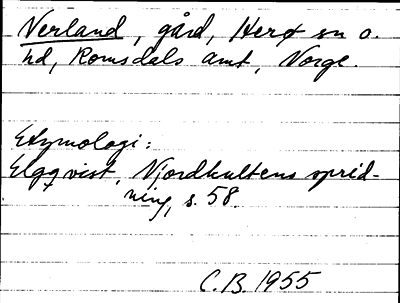 Nerland, gård, Herø sn o.
hd, Romsdals amt, Norge.
Etymologi:
Elgqvist, Njordkultens sprid-
ning, s. 58.
C.B. 1955